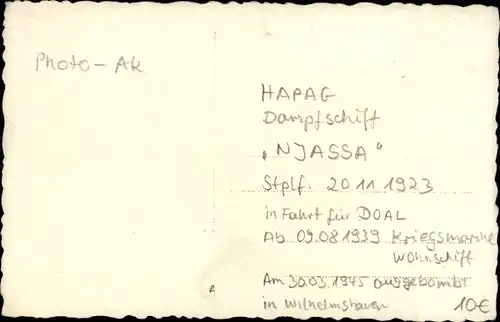 Photo - AK
HAPAG
Dampfschiff
„NJASSA"
Stplf. 20 11 1923
in Fahrt für DOAL
Ab 09.08 1939 Kriegsmarine
Wohnschiff
Am 30.03.1945 ausgebombt
in Wilhelmshaven 10€
A